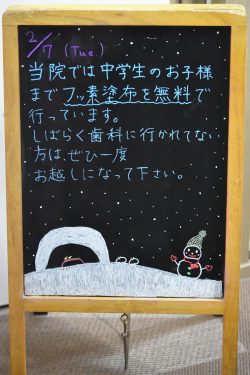 2/7 (Tue.)
当院では中学生のお子様
までフッ素塗布を無料で
行っています。
しばらく歯科に行かれてない
方は、ぜひ一度
お越しになって下さい。